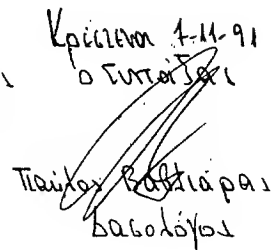 Κρέστενα 7-11-91
ο Συντάξας
Παύλος Βαβλιάρας
Δασολόγος